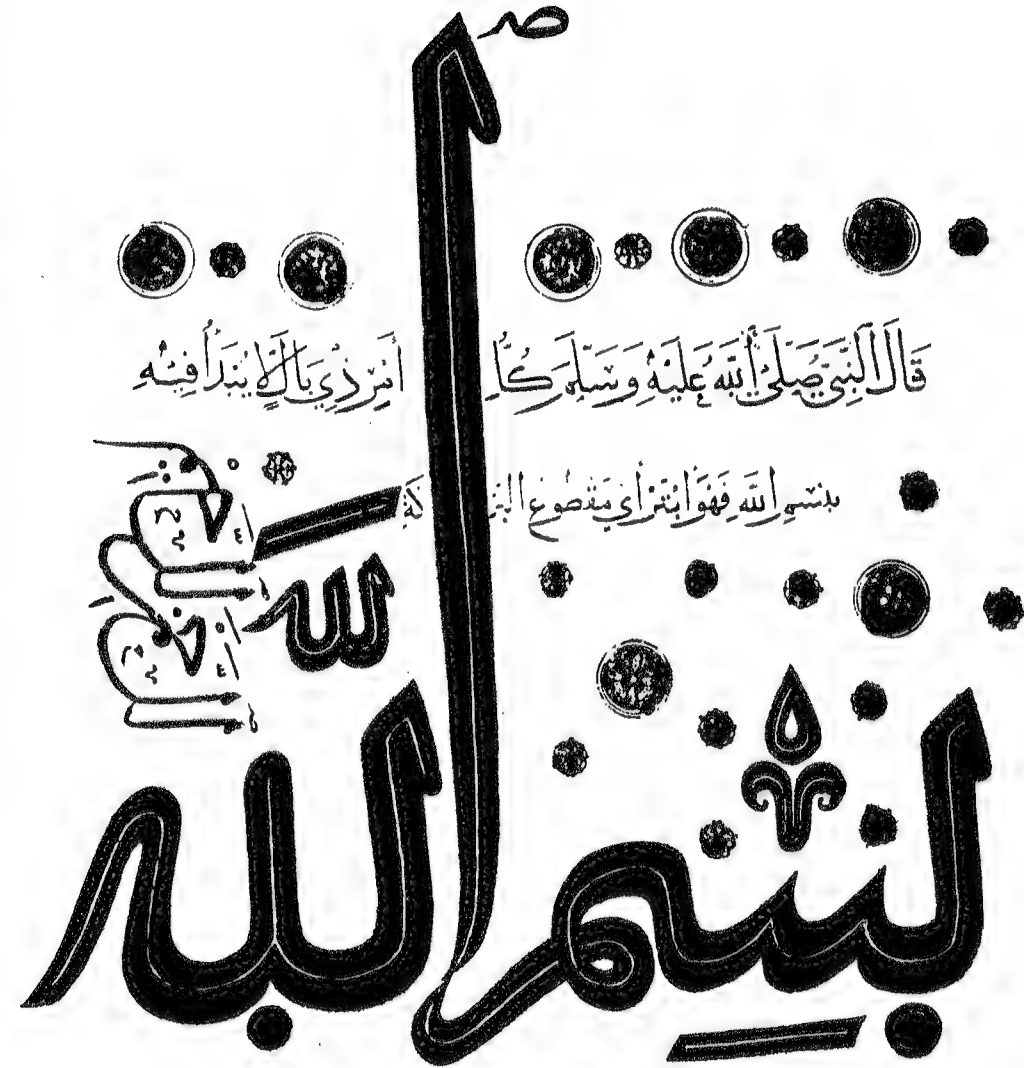 صـ
قَالَ النَّبِيُّ صَلَّى اللَّهُ عَلَيْهِ وَسَلَّمَ كُلُّ أَمْرٍ ذِي بَالٍ لَا يُبْدَأُ فِيْهِ
بِسْمِ اللَّهِ فَهُوَ أَبْتَرُ أَيْ مَقْطُوعُ الْبَرَكَةِ
بِسْمِ اللَّهِ
الرحمن
الرحيم